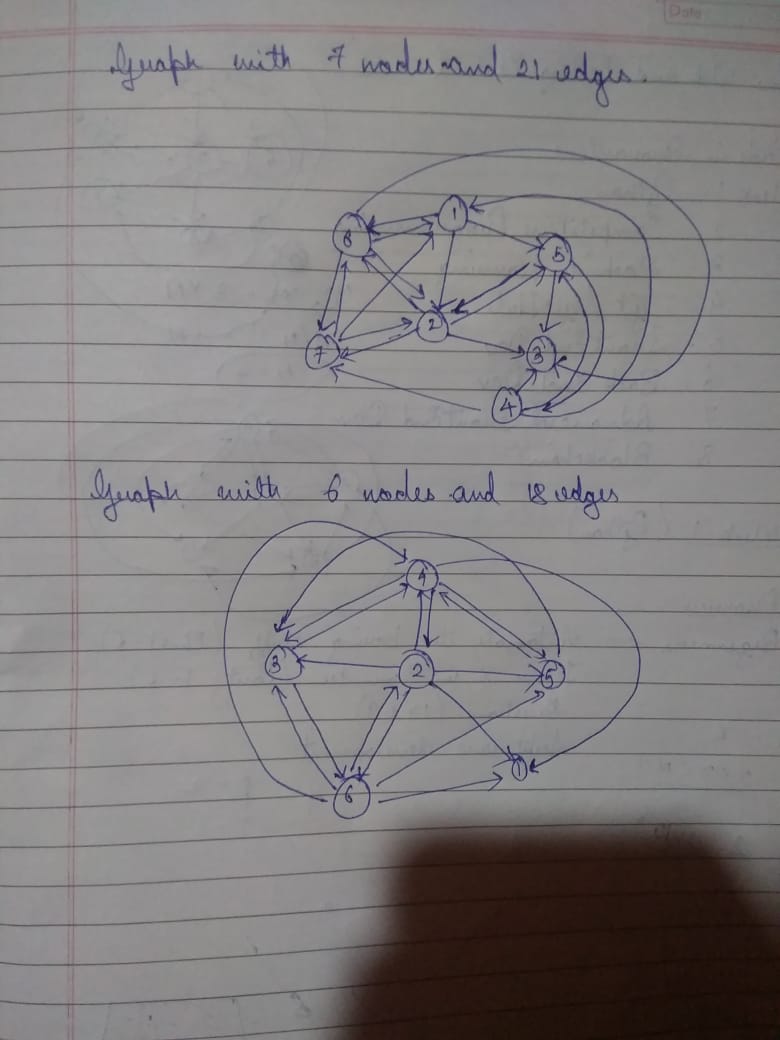 Date
Graph with 7 nodes and 21 edges.
6
1
5
2
7
3
4
Graph with 6 nodes and 18 edges
4
3
2
5
1
6